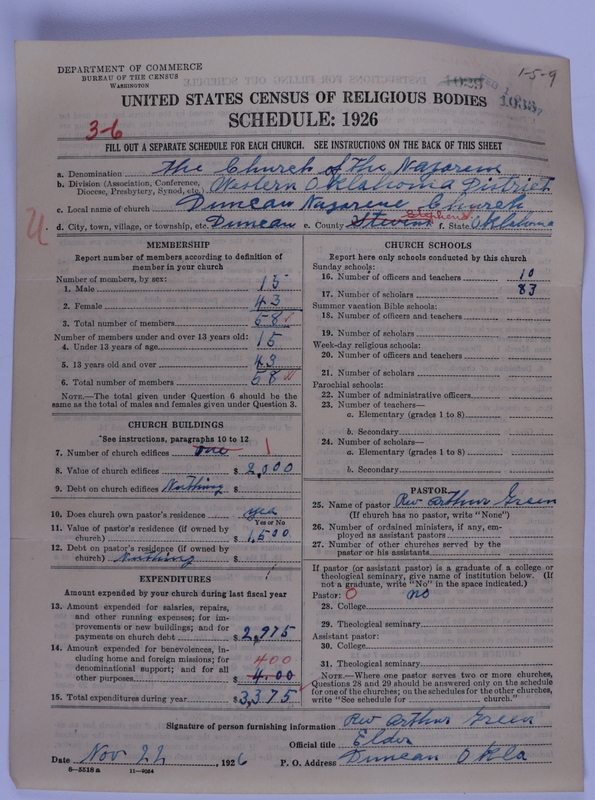 DEPARTMENT OF COMMERCE
BUREAU OF THE CENSUS
WASHINGTON
1-5-9
UNITED STATES CENSUS OF RELIGIOUS BODIES
SCHEDULE: 1926
3-6
FILL OUT A SEPARATE SCHEDULE FOR EACH CHURCH. SEE INSTRUCTIONS ON THE BACK OF THIS SHEET
a. Denomination The Church of The Nazarene
b. Division (Association, Conference, Diocese, Presbytery, Synod, etc.) Western Oklahoma District
c. Local name of church Duncan Nazarene Church
d. City, town, village, or township, etc. Duncan e. County Stevens Stephens f. State Oklahoma
MEMBERSHIP
Report number of members according to definition of
member in your church
Number of members, by sex:
1. Male 15
2. Female 43
3. Total number of members 58
Number of members under and over 13 years old:
4. Under 13 years of age 15
5. 13 years old and over 43
6. Total number of members 58
NOTE.—The total given under Question 6 should be the
same as the total of males and females given under Question 3.
CHURCH BUILDINGS
*See instructions, paragraphs 10 to 12
7. Number of church edifices one 1
8. Value of church edifices $ 2,000
9. Debt on church edifices Nothing $
10. Does church own pastor's residence yes
Yes or No
11. Value of pastor's residence (if owned by
church) $ 1,500
12. Debt on pastor's residence (if owned by
church) Nothing $
EXPENDITURES
Amount expended by your church during last fiscal year
13. Amount expended for salaries, repairs,
and other running expenses; for im-
provements or new buildings; and for
payments on church debt $ 2,975
14. Amount expended for benevolences, in-
cluding home and foreign missions; for
denominational support; and for all
400
other purposes $ 4.00
15. Total expenditures during year $ 3,375
CHURCH SCHOOLS
Report here only schools conducted by this church
Sunday schools:
16. Number of officers and teachers 10
17. Number of scholars 83
Summer vacation Bible schools:
18. Number of officers and teachers
19. Number of scholars
Week-day religious schools:
20. Number of officers and teachers
21. Number of scholars
Parochial schools:
22. Number of administrative officers
23. Number of teachers—
a. Elementary (grades 1 to 8)
b. Secondary
24. Number of scholars—
a. Elementary (grades 1 to 8)
b. Secondary
PASTOR
25. Name of pastor Rev Arthur Green
(If church has no pastor, write "None")
26. Number of ordained ministers, if any, em-
ployed as assistant pastors
27. Number of other churches served by the
pastor or his assistants
If pastor (or assistant pastor) is a graduate of a college or
theological seminary, give name of institution below. (If
not a graduate, write "No" in the space indicated.)
Pastor: 0 no
28. College
29. Theological seminary
Assistant pastor:
30. College
31. Theological seminary
NOTE.—Where one pastor serves two or more churches,
Questions 28 and 29 should be answered only on the schedule
for one of the churches; on the schedules for the other churches,
write "See schedule for church."
Signature of person furnishing information Rev Arthur Green
Official title Elder
Date Nov 22, 1926 P. O. Address Duncan Okla
8—5518 a 11—9024